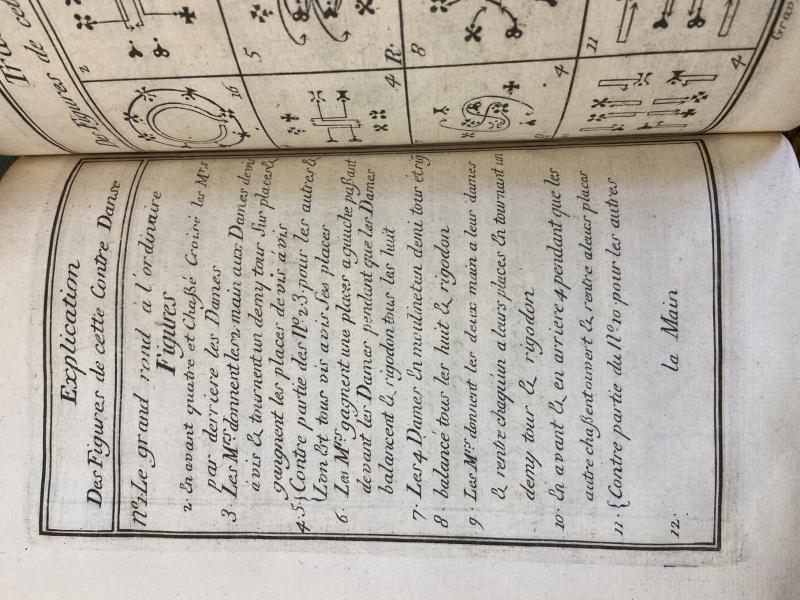 Explication
Des Figures de cette Contre Danse
N.º 1. Le grand rond à l'ordinaire
Figures
2. En avant quatre et Chaßé Croisé les M.rs
par derriere les Dames
3. Les M.rs donnent les 2 main aux Dames de
á vis & tournent un demy tour sur places &
gangnent les places de vis á vis
4. 5. {Contre partie des N.º 2. 3. pour les autres &
L'on Est tous vis a vis ses places
6. Les M.rs gagnent une places a gauche paßant
devant les Dames pendant que les Dames
balancent & rigodon tous les huit
7. Les 4 Dames En moulinet un demi tour
8. balancé tous les huit & rigodon
9. Les M.rs donnent les deux main a leur dames
& rentre chaquún a leurs places En tournant un
demy tour & rigodon
10. En avant & en arriere 4 pendant que les
autre chaßent ouvert & rentre a leurs places
11. {Contre partie du N.º 10 pour les autres
12. la Main
Figures de
2
5
8
11
16
4 R.
4
4
Grav